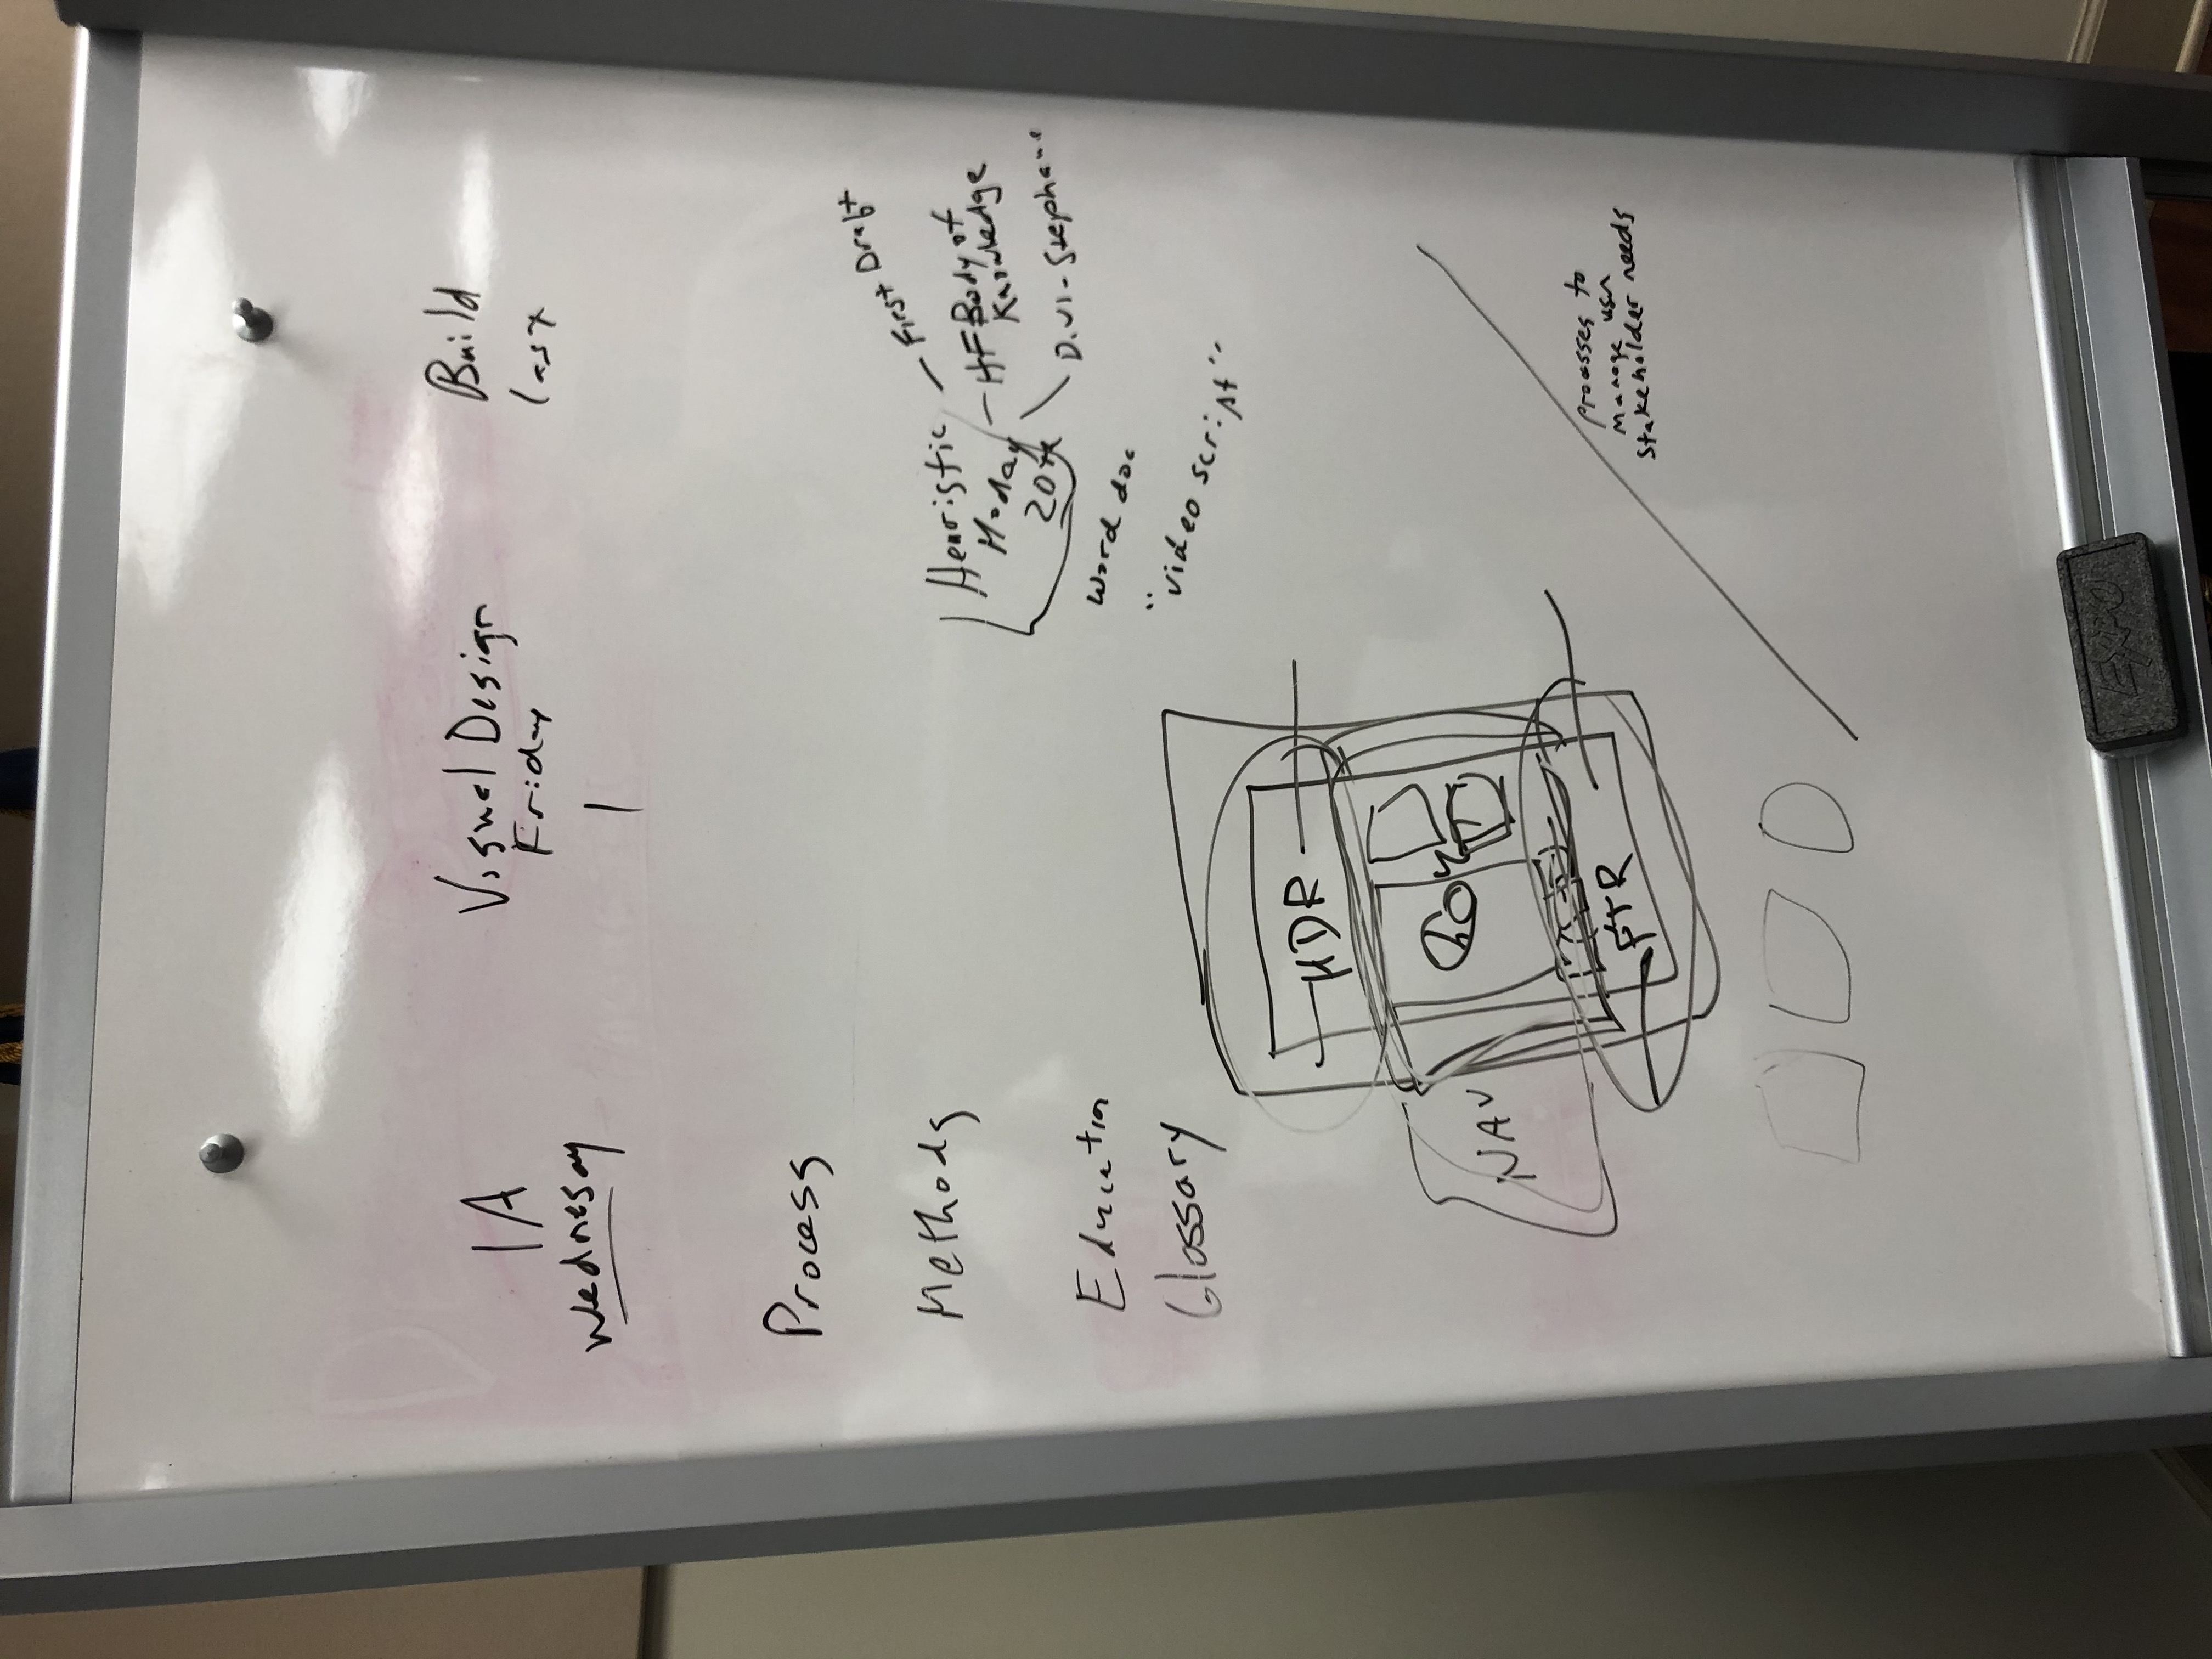 IA
Wednesay
Visual Design
Friday
Build
last
Process
Methods
Education
Glossary
Heuristic
Monday
20th
First Draft
HF Body of
Knowledge
Word doc
"video script"
HDR
NAV
FTR
processes to
manage
stakeholder needs
EXPO